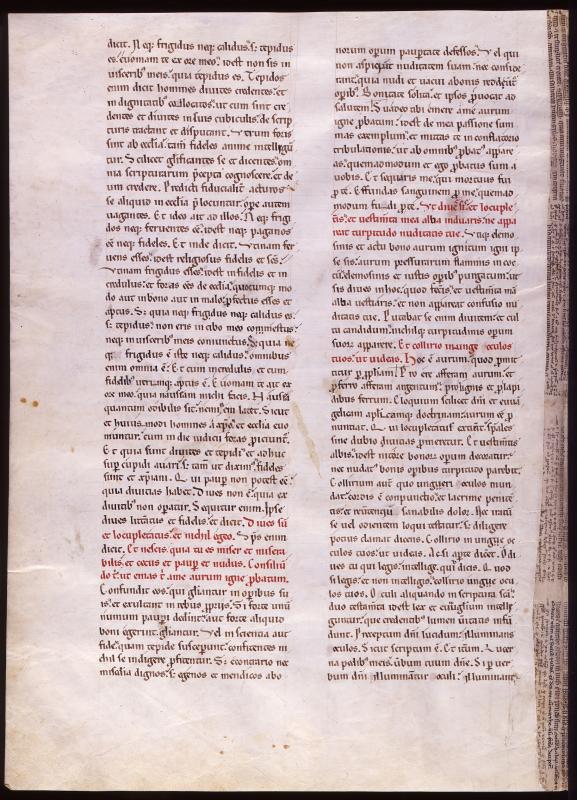 dicit. Neq; frigidus neq; calidus. s; tepidus
es. euomam te ex ore meo. idest non sis in
uisceribus meis. quia tepidus es. Tepidos
enim dicit homines diuites credentes. et
in dignitatibus collocatos. ut cum sint cre
dentes et diuites in suis cubiculis. de scrip
turis tractant et disputant. Verum foris
sint ab ecclia. tam fideles anime intelligun
tur. Scilicet glificantes se et dicentes. om
nia scripturarum precepta cognoscere. et de
um credere. Predicti fiducialit
se aliquid in ecclia plocuntur. ope autem
uagantes. Et ideo ait ad illos. Neq; frigi
dos neq; feruentes ee. idest neq; paganos
ee neq; fideles. Et inde dicit. Utinam fer
uens esses. idest religiosus fidelis et scs.
Utinam frigidus esses. idest infidelis et in
credulus. et foras ees de ecclia. quocumq; mo
do aut in bono aut in malo. pfectus esses et
aptus. S; quia neq; frigidus neq; calidus es.
s; tepidus. non eris in cibo meo commestus.
neq; in uisceribus meis coniunctus. Qui
frigidus e iste neq; calidus. omnibus
enim omnia e. Et cum incredulis. et cum
fidelib; utrumq; aptus e. Euomam te aut ex
ore meo. quia nausiam michi facis. Nausia
quantum odibilis sit. nemine latet. Sicut
et huius modi homines a xpo. et ecclia euo
muntur. cum in die iudicii foras piciunt.
Et quia sunt diuites et tepidi. et adhuc
sup cupidi auari. s; tam ut diximus fideles
sint et xpiani. Qui paup non potest ee.
quia diuicias habet. Diues non e. quia ex
diuitiis non opatur. Sequitur enim. Ipse
diues licitatus et fidelis. et dicit. Diues su
et locupletatus. et nichil egeo. Dps enim
dicit. Et nescis. quia tu es miser et misera
bilis. et cecus et paup et nudus. Consiliu
do t. ut emas a me aurum igne pbatum.
Confundit eos. qui gliantur in opibus su
is. et exultant in rebus ppriis. Si forte unu
nummum paupi dedint. aut forte aliquid
boni egerint. gliantur. Vel in scientia aut
fide. quam tepide suscepunt. confitentes ni
chil se indigere pfitentur. Si econtrario ne
misalia dignos. s; egenos et mendicos abo
norum opum paupertate defessos. Vel qui
non aspiciant nuditatem suam. nec conside
rant. quia nudi et uacui abonis reddentur
opib;. Bonitate solita. et ipsos puocat ad
salutem. Suadeo tibi emere a me aurum
igne pbatum. idest de mea passione sum
mas exemplum. et mittas te in conflatorio
tribulationis. ut ab omnibus pbatus appare
as. quemadmodum et ego pbatus sum a
uobis. Et sequaris me. qui mortuus fui
p te. Effundas sanguinem p me. quemad
modum fudi p te. Ut diues sis. et locuple
tis. et uestimta mea alba induaris. ne appa
reat turpitudo nuditatis tue. Utiq; demo
sinis et actu bono aurum ignitum igni ip
se sis. aurum pressurarum flammis in coe
lemosinis et iustis opibus purgatum. ut
sis diues in hoc. quod fecis. et uestimta tua
alba uestiaris. et non appareat confusio nu
ditatis tue. Putabat se enim diuitem. et cul
tu candidum. nichilq; turpitudinis opum
suorum apparere. Et collirio inunge oculos
tuos. ut uideas. Hoc e aurum. quod pmit
titur p pphiam. Pro ere afferam aurum. et
p ferro afferam argentum. p lignis et p lapi
dibus ferrum. Eloquium scilicet diuini et euua
gelicam aplicamq; doctrinam. aurum ee p
nuntiat. Qui in locupletatus existunt. spales
sine dubio diuicias pmeretur. Et uestimtis
albis. idest nitore bonorum opum decoratur.
nec nudatus bonis opibus turpitudo parebit.
Collirium aute quo ungueri oculos mun
dat. cordis e conpunctio. et lacrime penite
tis. et retinenq; sanabilis dolor. Nec tantu
se uel odorientem loqui testatur. s; diligere
potius clamat dicens. Collirio inunge oc
ulos tuos. ut uideas. Ac si apte dicet. Odi
ues tu qui legis. intellige. quod dicis. Quod
si legis. et non intelligis. collirio ungue ocu
los tuos. Oculi aliquando in scriptura sca.
duo testamta idest lex et euuglium intelli
guntur. que credentibus lumen ueritatis infu
dunt. Preceptum dni lucidum. illuminans
oculos. Sicut scriptum e. Et item. Lucer
na pedibus meis uerbum tuum dne. Si p uer
bum dni illuminatur oculi. illuminant